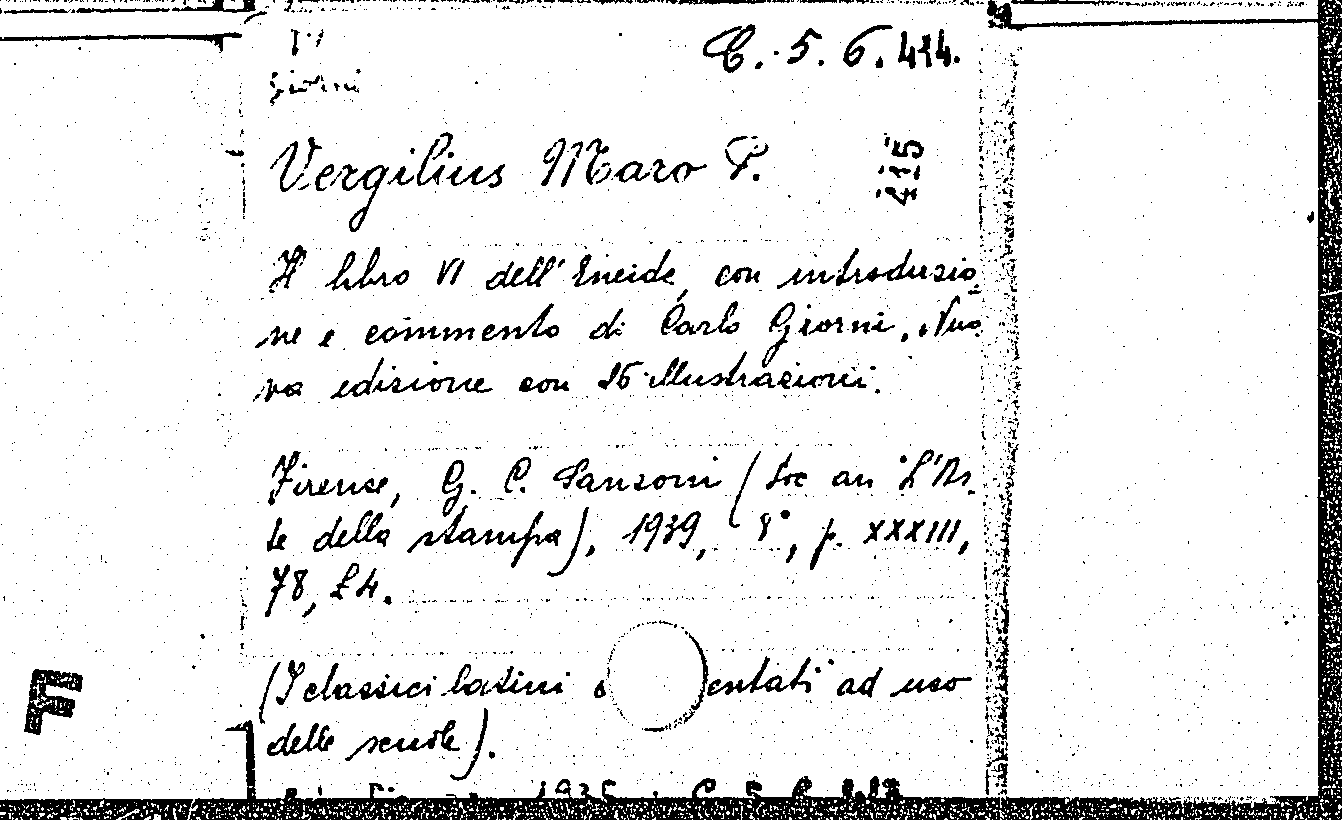 C. 5. 6. 414.
Giorni
Vergilius Maro P.
415
Il libro VI dell'Eneide, con introduzio
ne e commento di Carlo Giorni. Nuo
va edizione con 26 illustrazioni.
Firenze, G. C. Sansoni (Soc an L'Ar
te della stampa), 1939, 8°, p. XXXIII,
78, £4.
(I classici latini entati ad uso
delle scuole).
1935
F